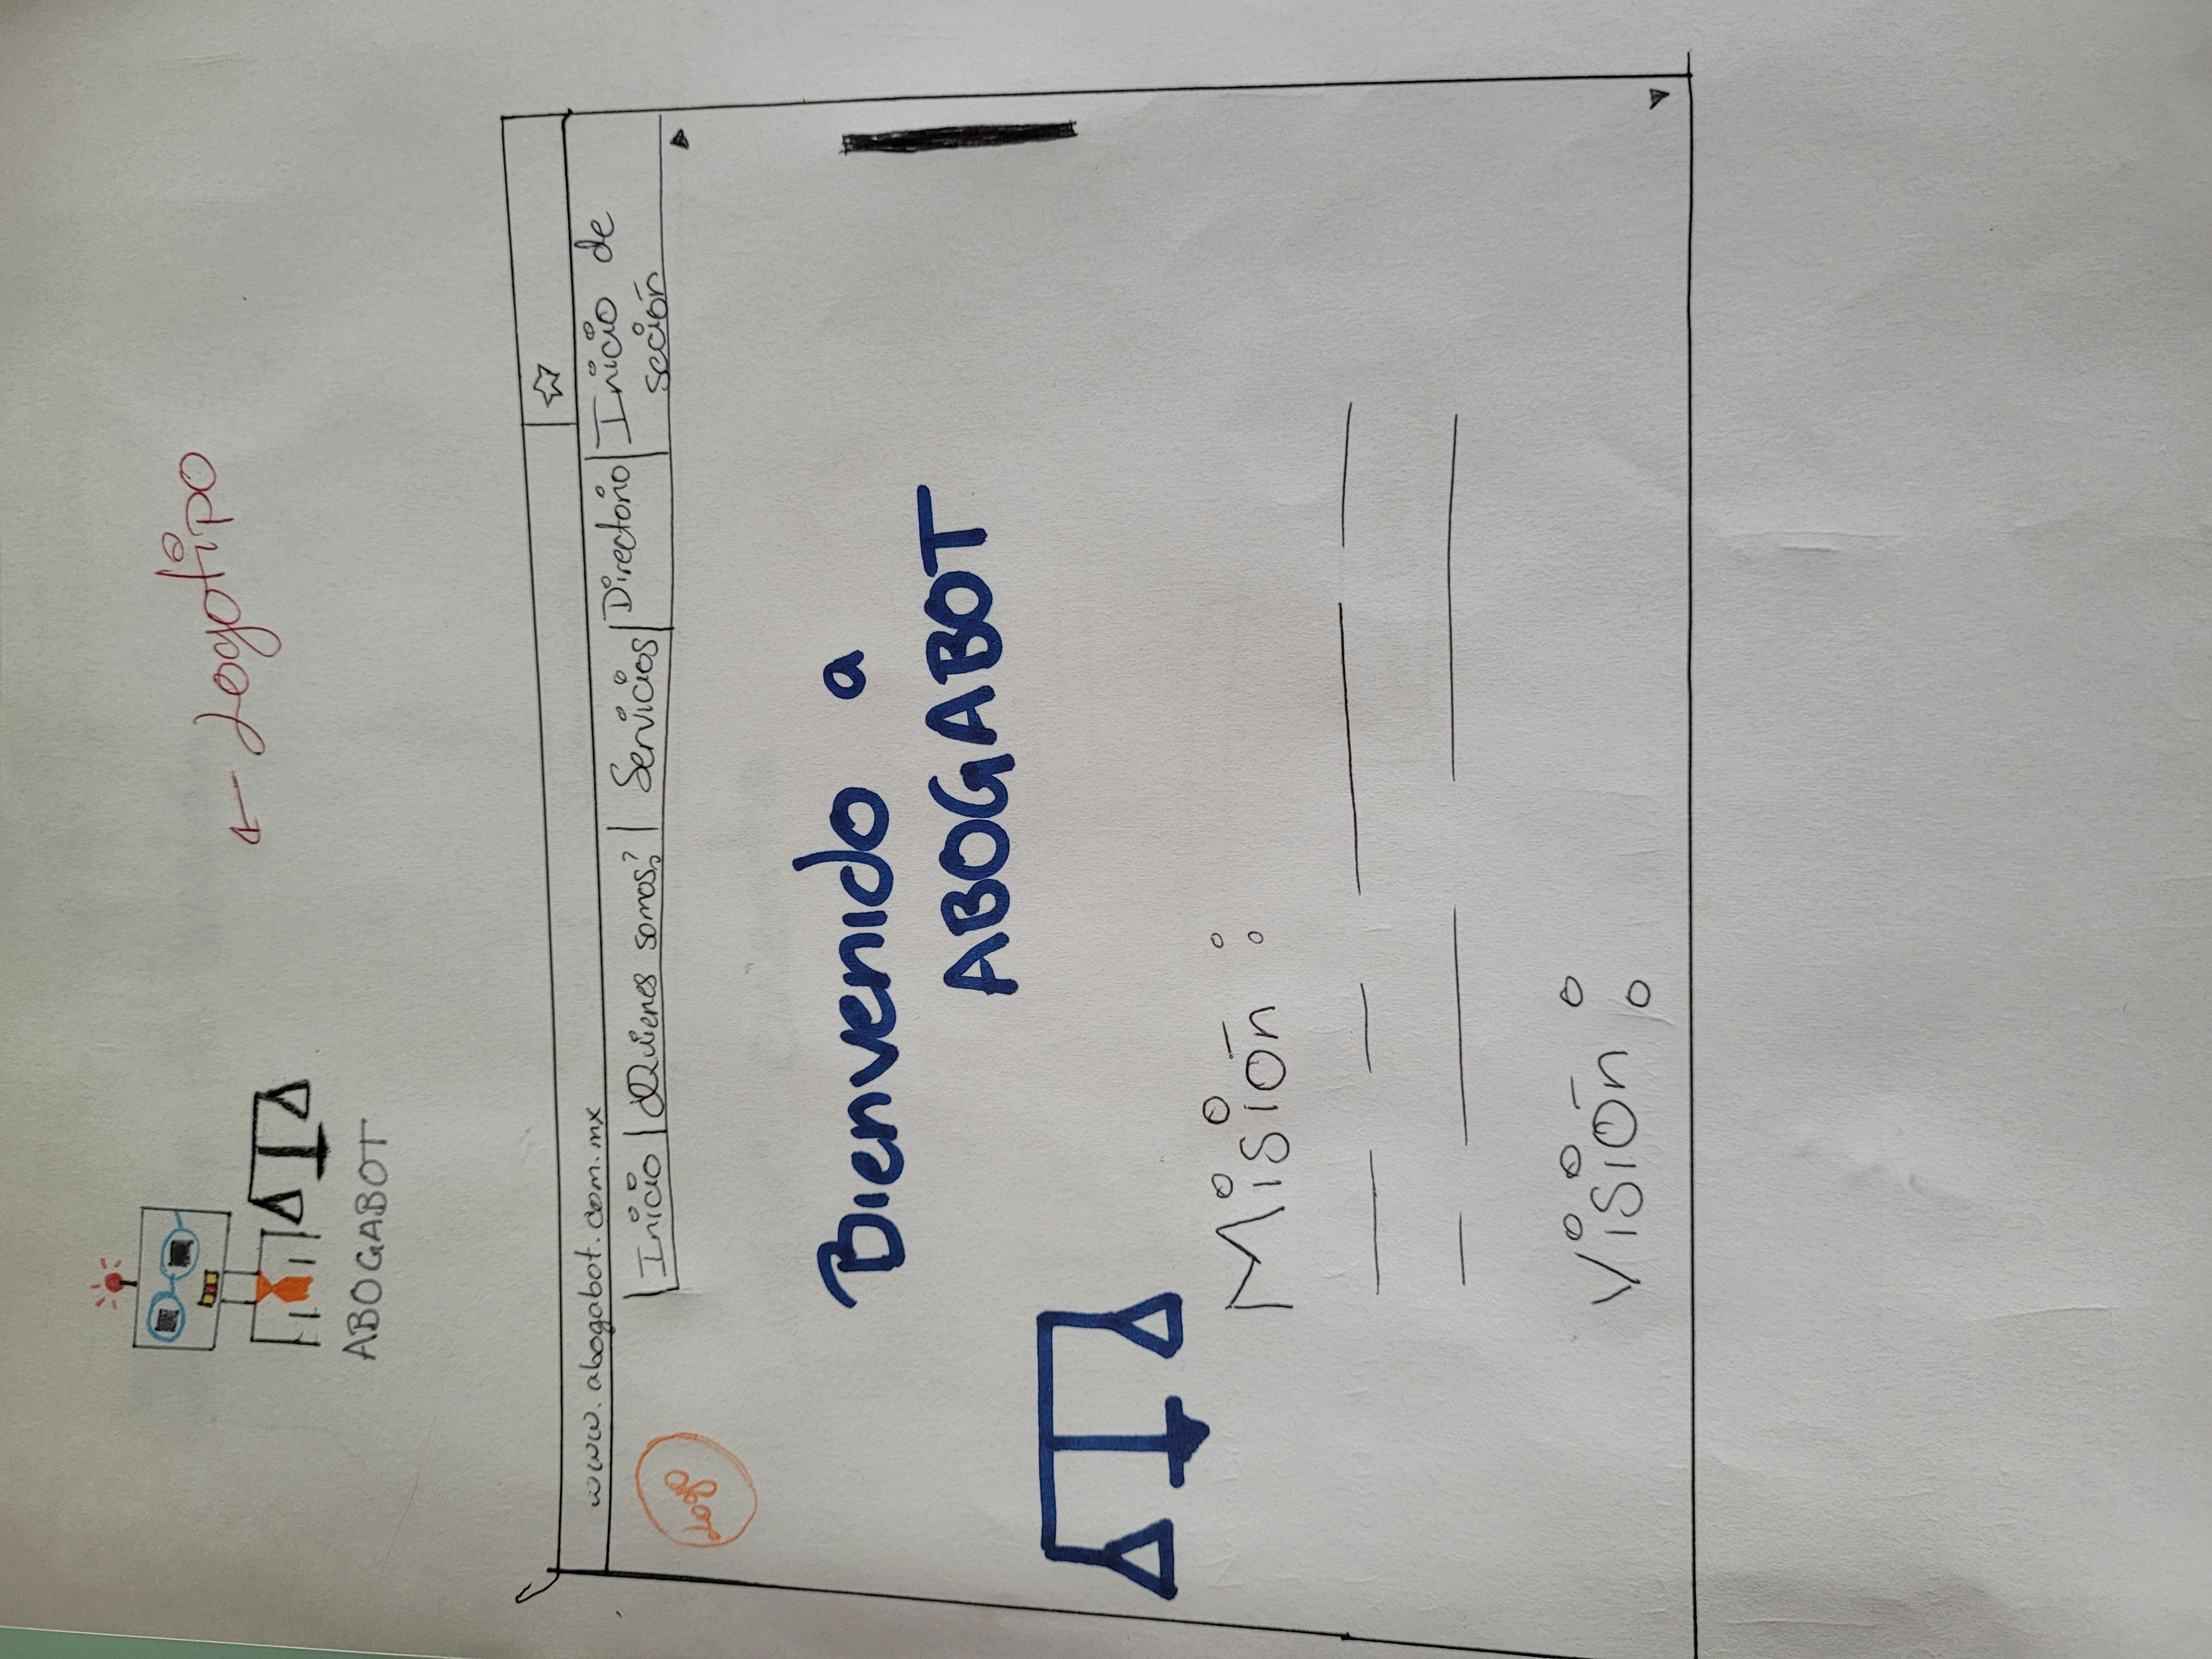 ← Logotipo
ABOGABOT
www.abogabot.com.mx
Inicio ¿Quienes somos? Servicios Directorio Inicio de
seción
Logo
Bienvenido a
ABOGABOT
Misión :
Visión :